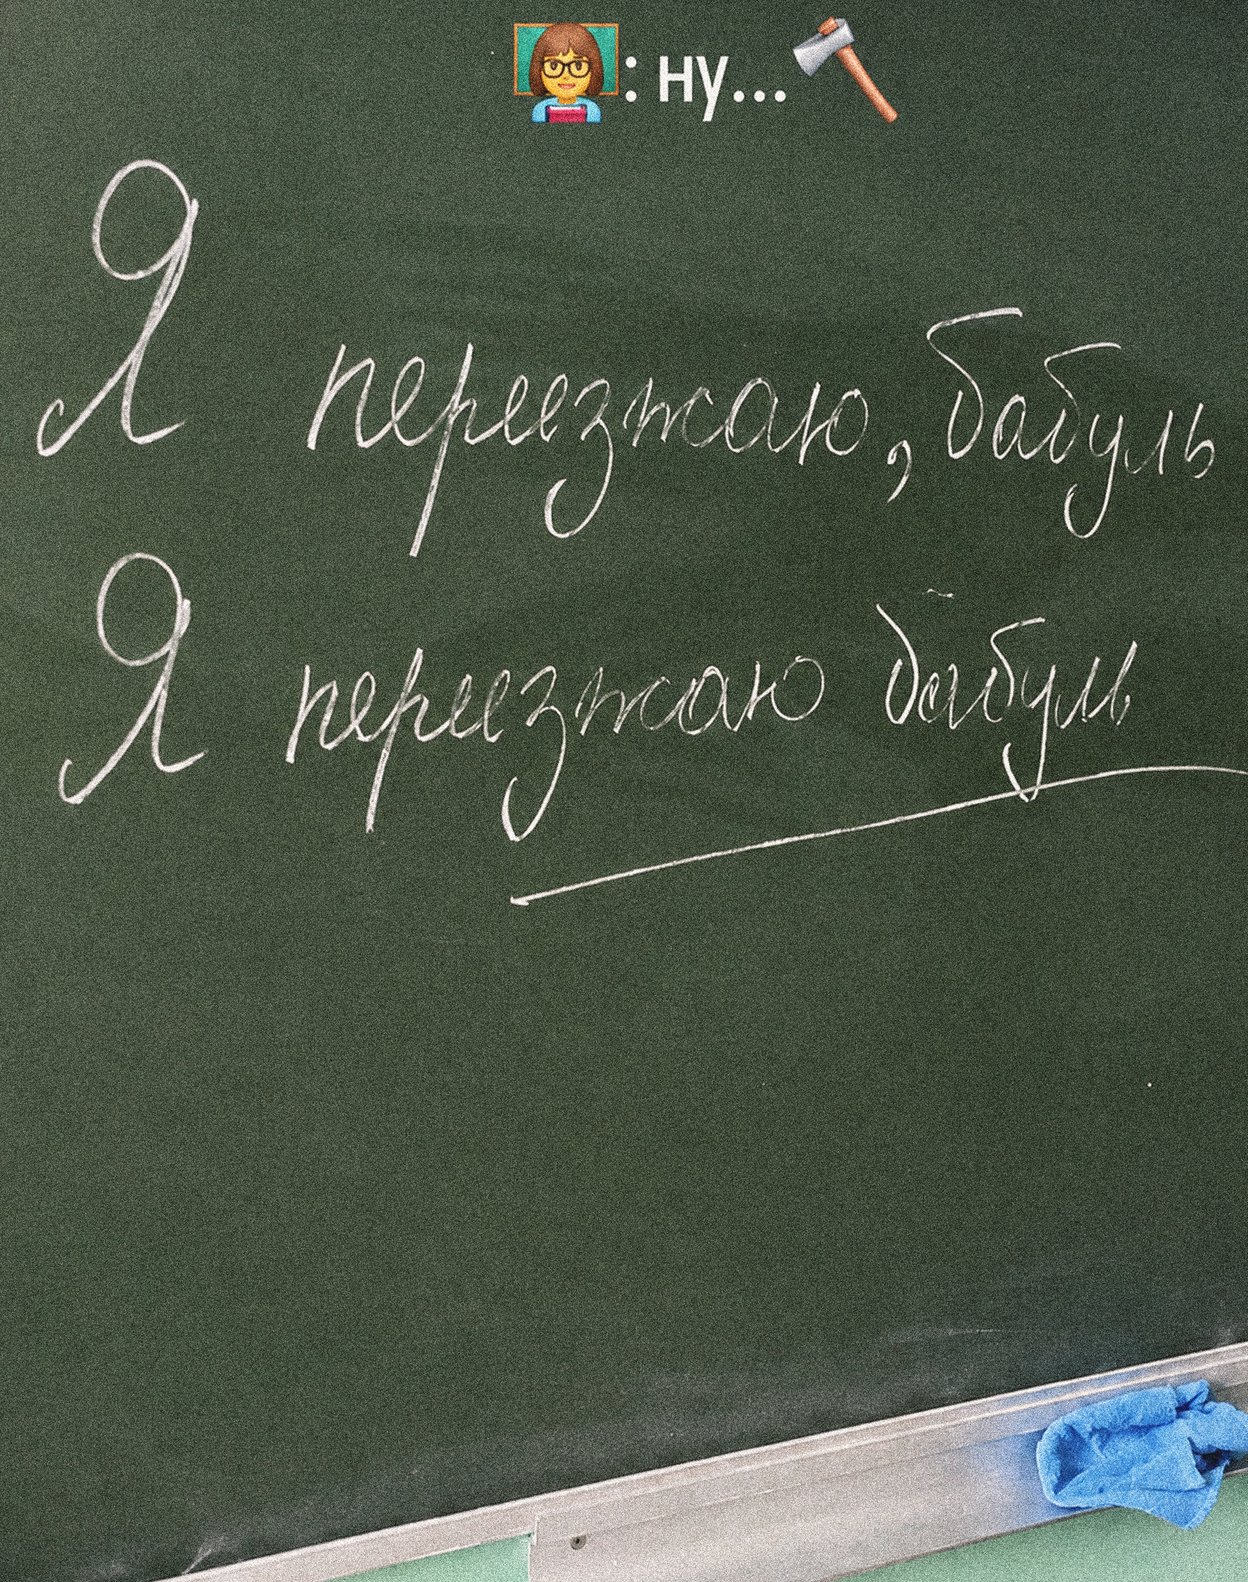 👩‍🏫: ну...🪓
Я переезжаю, бабуль
Я переезжаю бабуль